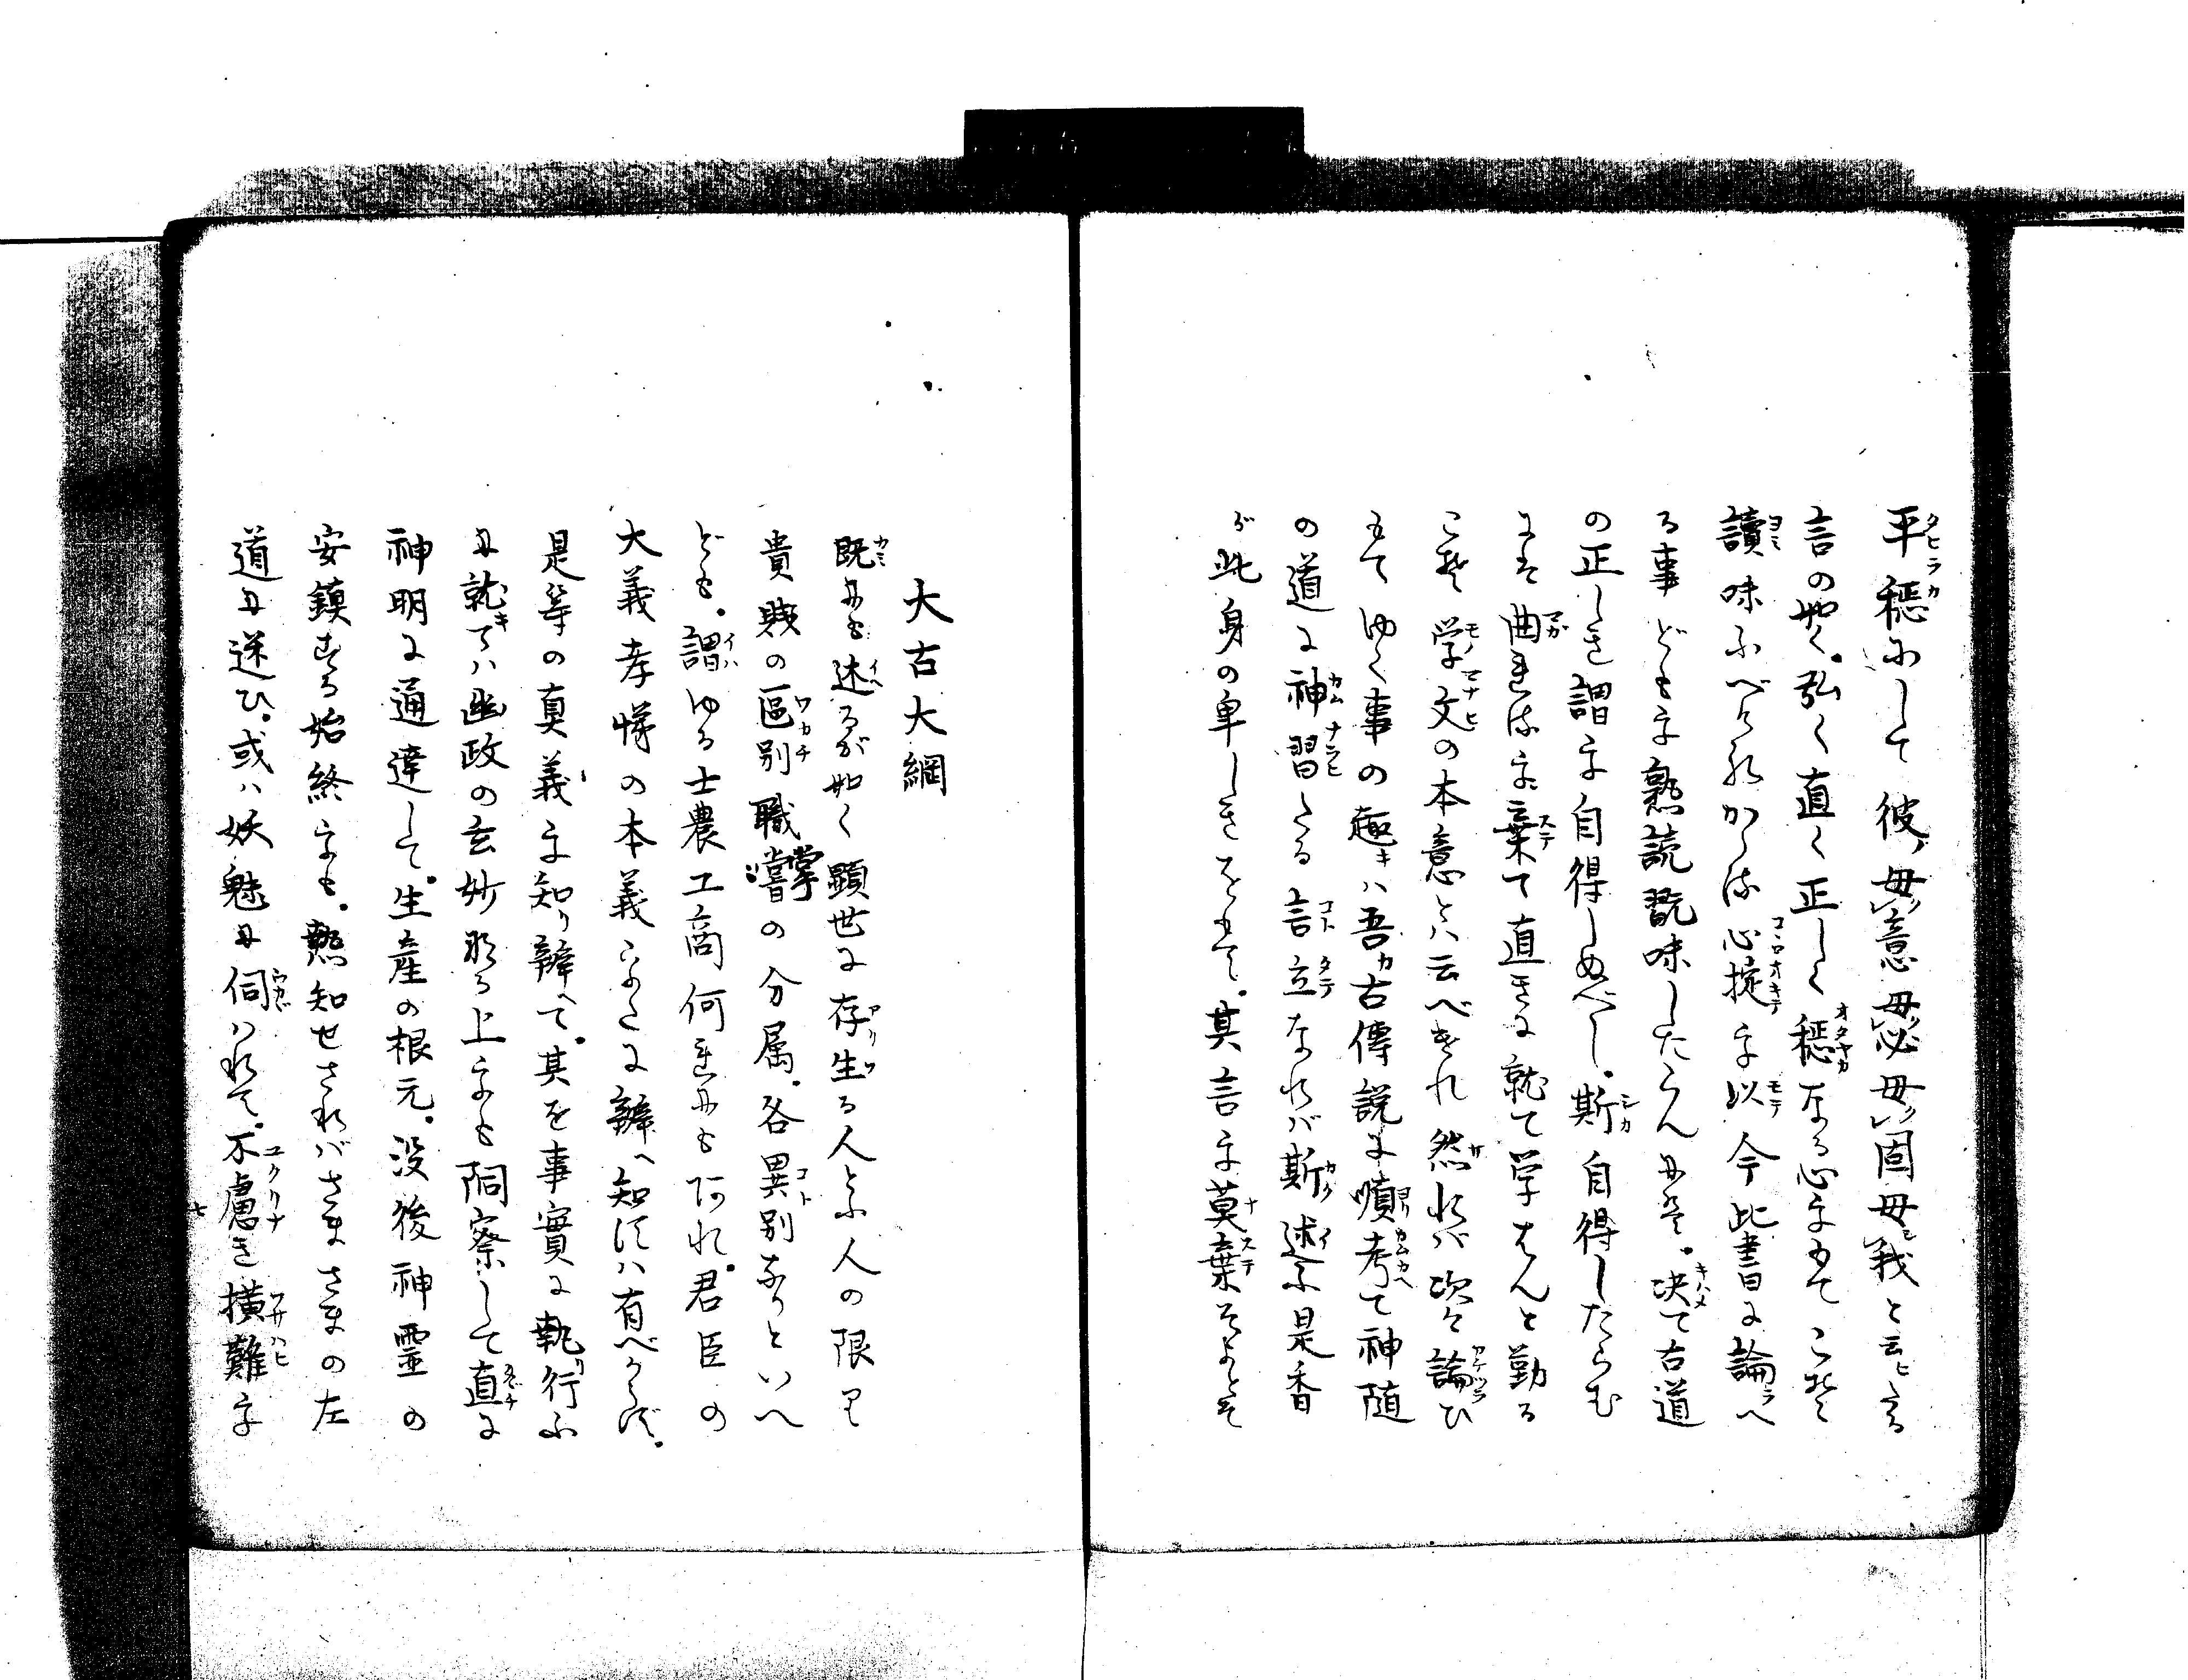 平穏にして彼ノ毋意毋必毋固毋我と云ヒたる
言の如く。弘く直く正しく穏なる心を以て こそ
讀味ふべけれかゝる心掟を以今此書に論へ
る事どもを熟読翫味したらんには。决て古道
の正しき謂を自得しぬべし。斯自得したらむ
には曲れるを棄て直きに就て学はんと勤る
こそ学文の本意とハ云べけれ然れバ次々論ひ
もてゆく事の趣キハ吾カ古傳説に噴考て神随
の道に神習たる言立なれバ斯述ふ是香
が此身の卑しきをもて。其言を莫棄そよとぞ
大古大綱
既にも述るが如く顕世に存生る人とふ人の限り
貴賎の區別職掌の分属。各異別ありといへ
ども。謂ゆる士農工商何れにもあれ。君臣の
大義孝悌の本義ふかに辧へ知らずハ有べからず。
是等の真義を知り辧へて。其を事實に執行ふ
に就キてハ幽政の玄妙なる上をも洞察して直に
神明に通達して。生産の根元。没後神霊の
安鎮する始終をも。熟知せざれバさまさまの左
道に迷ひ。或ハ妖魅に伺ハれて。不慮き横難を